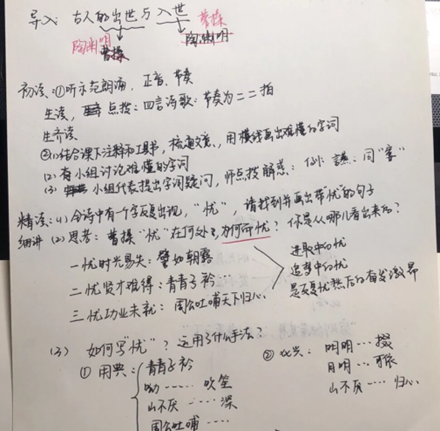 导入: 古人的出世与入世
曹操
陶渊明 陶渊明
曹操
初读: ①听示范朗诵, 正音、节奏
生读, 点拨: 四言诗歌: 节奏为二二拍
生齐读
②(1)结合课下注释和工具书, 梳通文意, 用横线画出难懂的字词
(2) 有小组讨论难懂的字词
(3) 小组代表提出字词疑问, 师点拨解惑: 例: 同“宴”
精读: (1) 全诗中有一个字反复出现, “忧”, 请找到并画出带“忧”的句子
细讲 (2) 思考: 曹操“忧”在何处? 为何而忧? 你是从哪儿看出来的?
一忧时光易失: 譬如朝露
二忧贤才难得: 青青子衿…
三忧功业未就: 周公吐哺天下归心
进取中的忧
追梦中的忧
是忧愁然后的奋发激昂
(3) 如何写“忧”? 运用了什么手法?
① 用典: 青青子衿
呦…… 吹笙
山不厌…… 深
周公吐哺……
② 比兴: 明明…掇
月明…可依
山不厌…归心